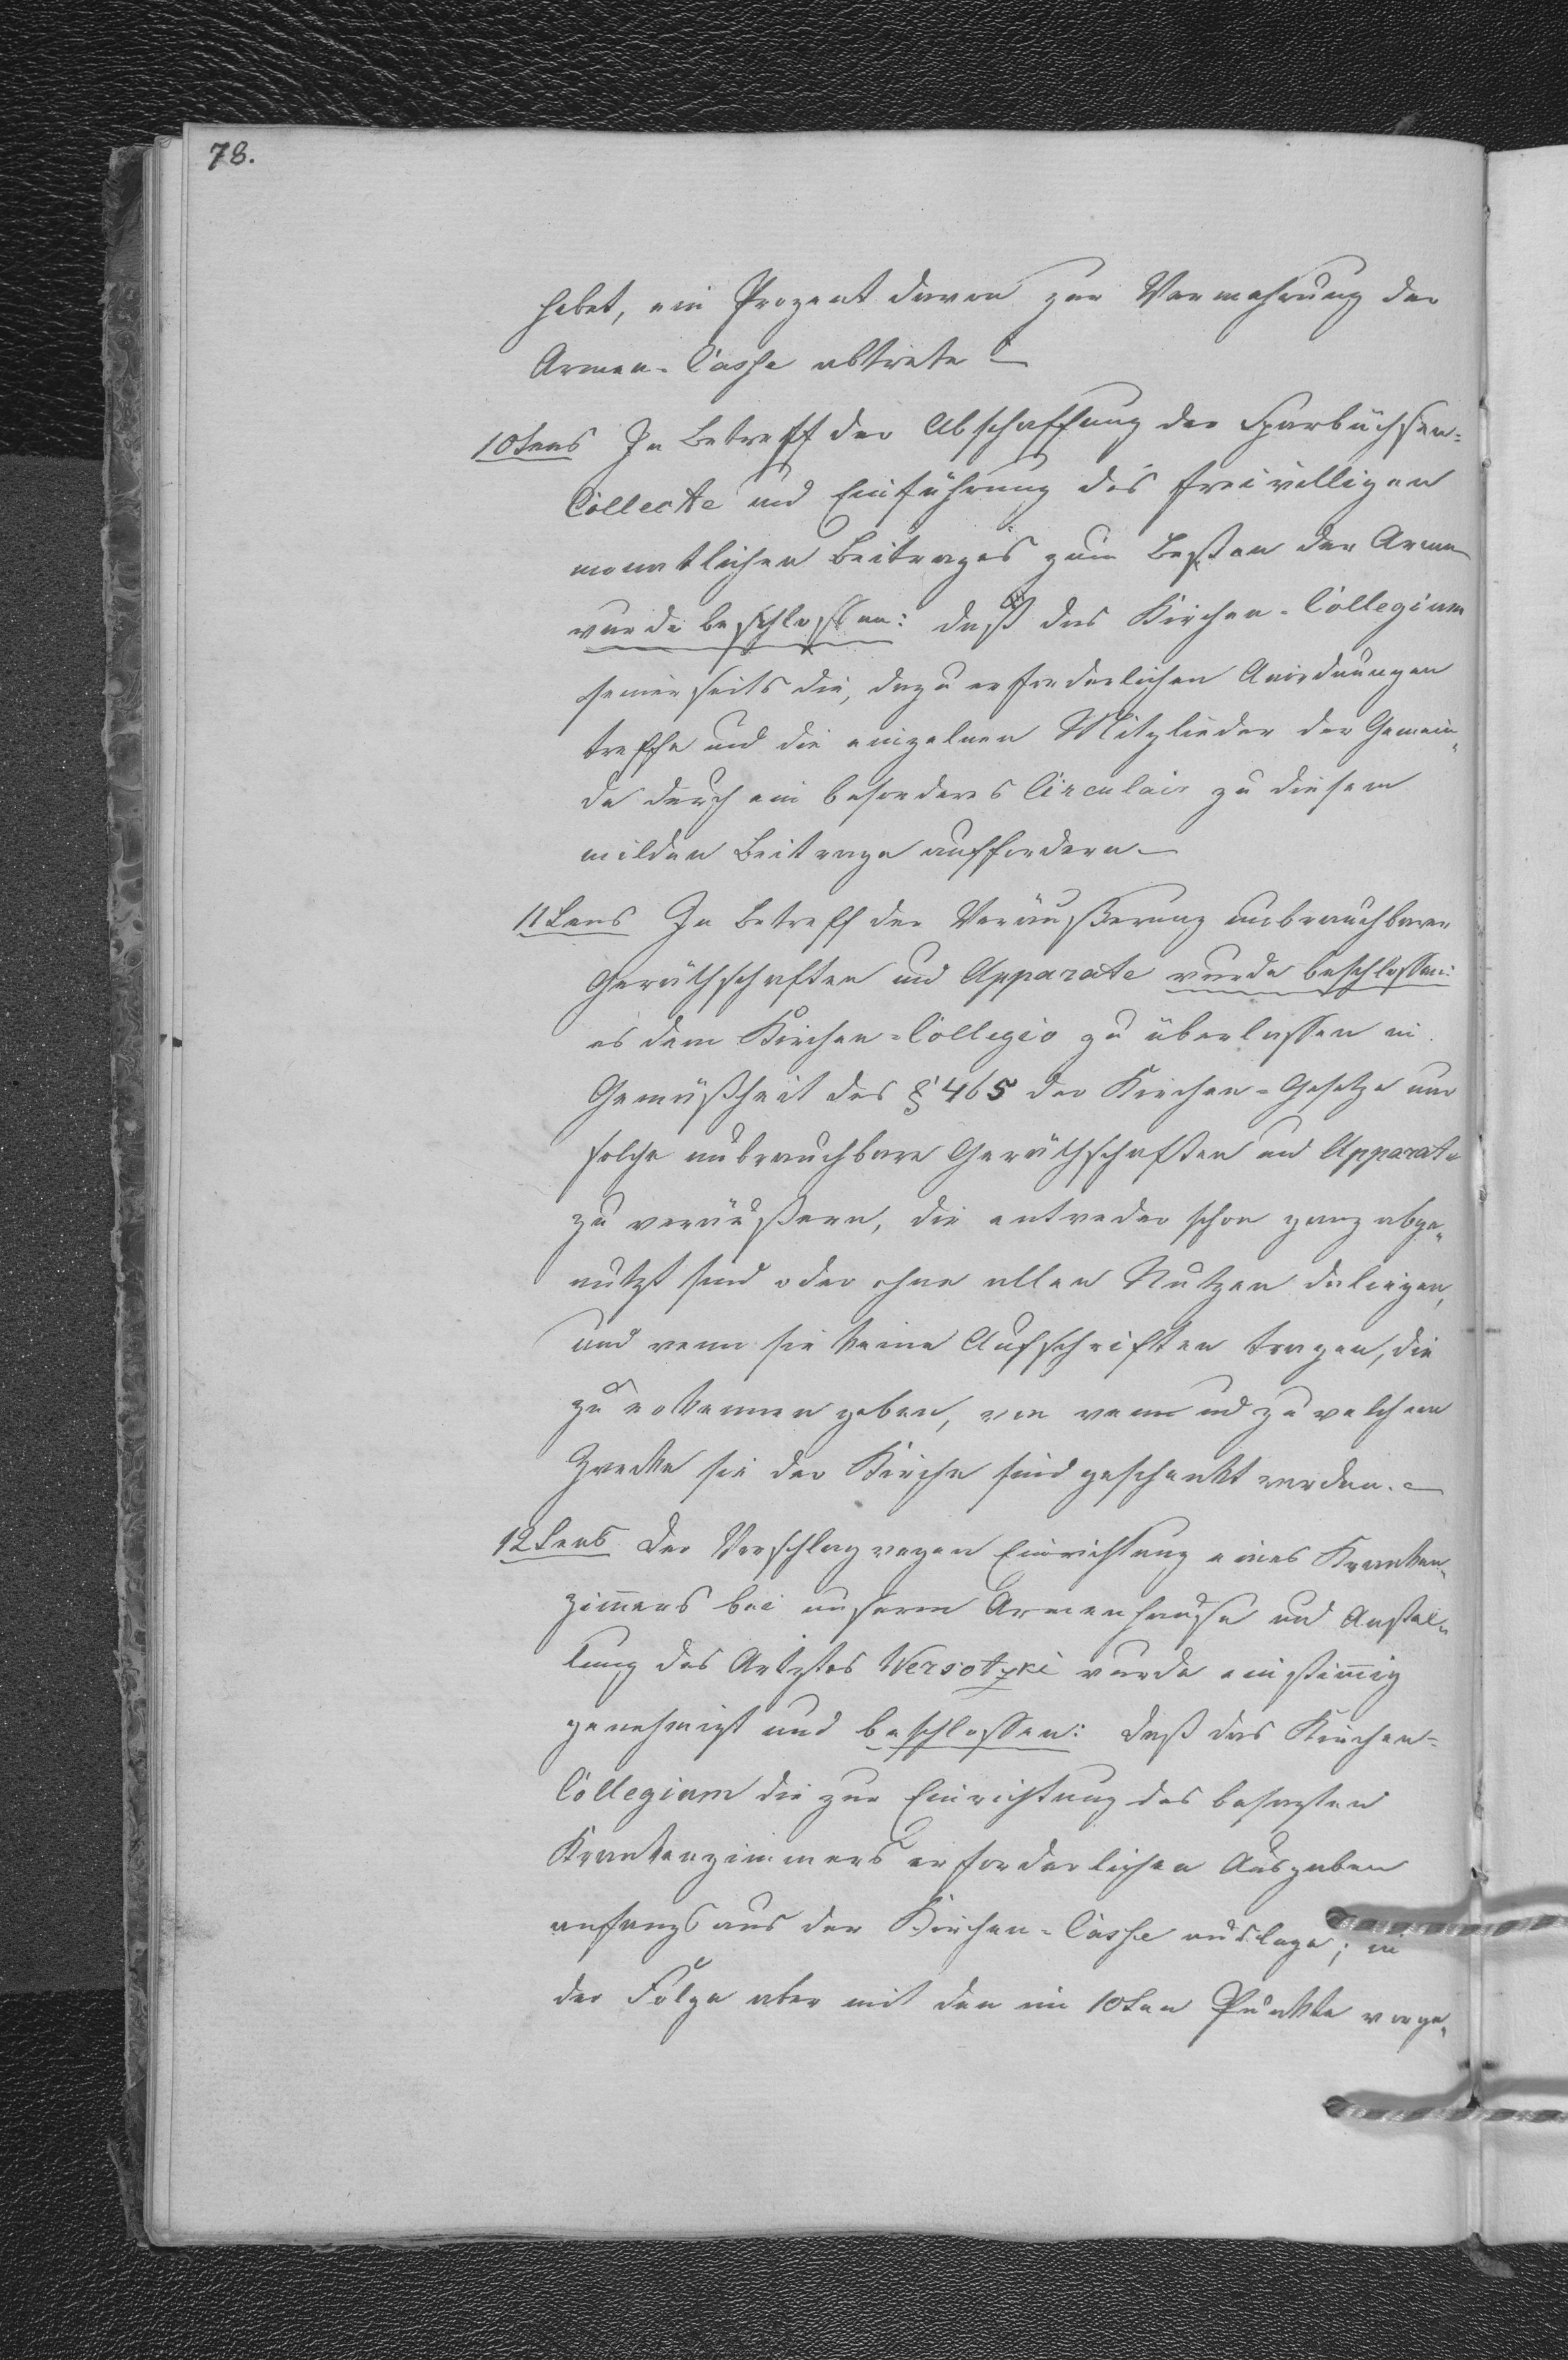 78.
habet, ein Prozent davon zur Vermehrung der
Armen-Casse abtrete. —
10tens In Betreff der Abschaffung der Sparbüchsen-
Collecte und Einführung des freiwilligen
monatlichen Beitrages zum Besten der Armen
wurde beschlossen: daß das Kirchen-Collegium
seinerseits die, dazu erforderlichen Anordnungen
treffe und die einzelnen Mitglieder der Gemein„
de durch ein besonders Circulair zu diesem
milden Beitrage auffordere. —
11tens In Betreff der Veräußerung unbrauchbarer
Geräthschaften und Apparate wurde beschlossen:
es dem Kirchen-Collegio zu überlassen in
Gemäßheit des § 465 der Kirchen-Gesetze nur
solche unbrauchbare Geräthschaften und Apparate
zu veräußern, die entweder schon ganz abge„
nutzt sind oder ohne allen Nutzen daliegen,
und wenn sie keine Aufschriften tragen, die
zu erkennen geben, von wem und zu welchem
Zwecke sie der Kirche sind geschenkt worden. —
12tens Der Vorschlag wegen Einrichtung eines Kranken„
zimmers bei unserem Armenhause und Anstel„
lung des Arztes Wersotzki wurde einstimmig
genehmigt und beschlossen: daß das Kirchen-
Collegium die zur Einrichtung des besagten
Krankenzimmers erforderlichen Ausgaben
anfangs aus der Kirchen-Casse auslege; in
der Folge aber mit den im 10ten Punkte vorge„